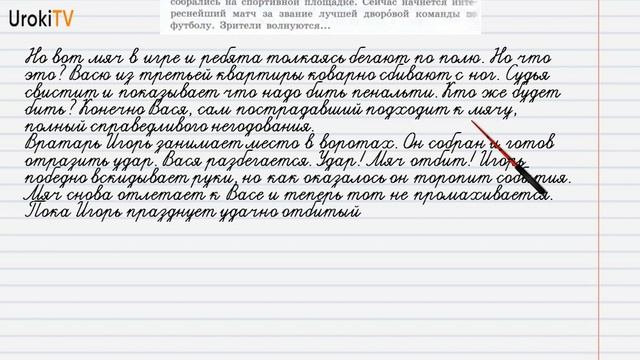 UrokiTV
собрались на спортивной площадке. Сейчас начнётся инте-
реснейший матч за звание лучшей дворо́вой команды по
футболу. Зрители волнуются...
Но вот мяч в игре и ребята толкаясь бегают по полю. Но что
это? Васю из третьей квартиры коварно сбивают с ног. Судья
свистит и показывает что надо бить пенальти. Кто же будет
бить? Конечно Вася, сам пострадавший подходит к мячу,
полный справедливого негодования.
Вратарь Игорь занимает место в воротах. Он собран и готов
отразить удар. Вася разбегается. Удар! Мяч отбит! Игорь
победно вскидывает руки, но как оказалось он торопит события.
Мяч снова отлетает к Васе и теперь тот не промахивается.
Пока Игорь празднует удачно отбитый